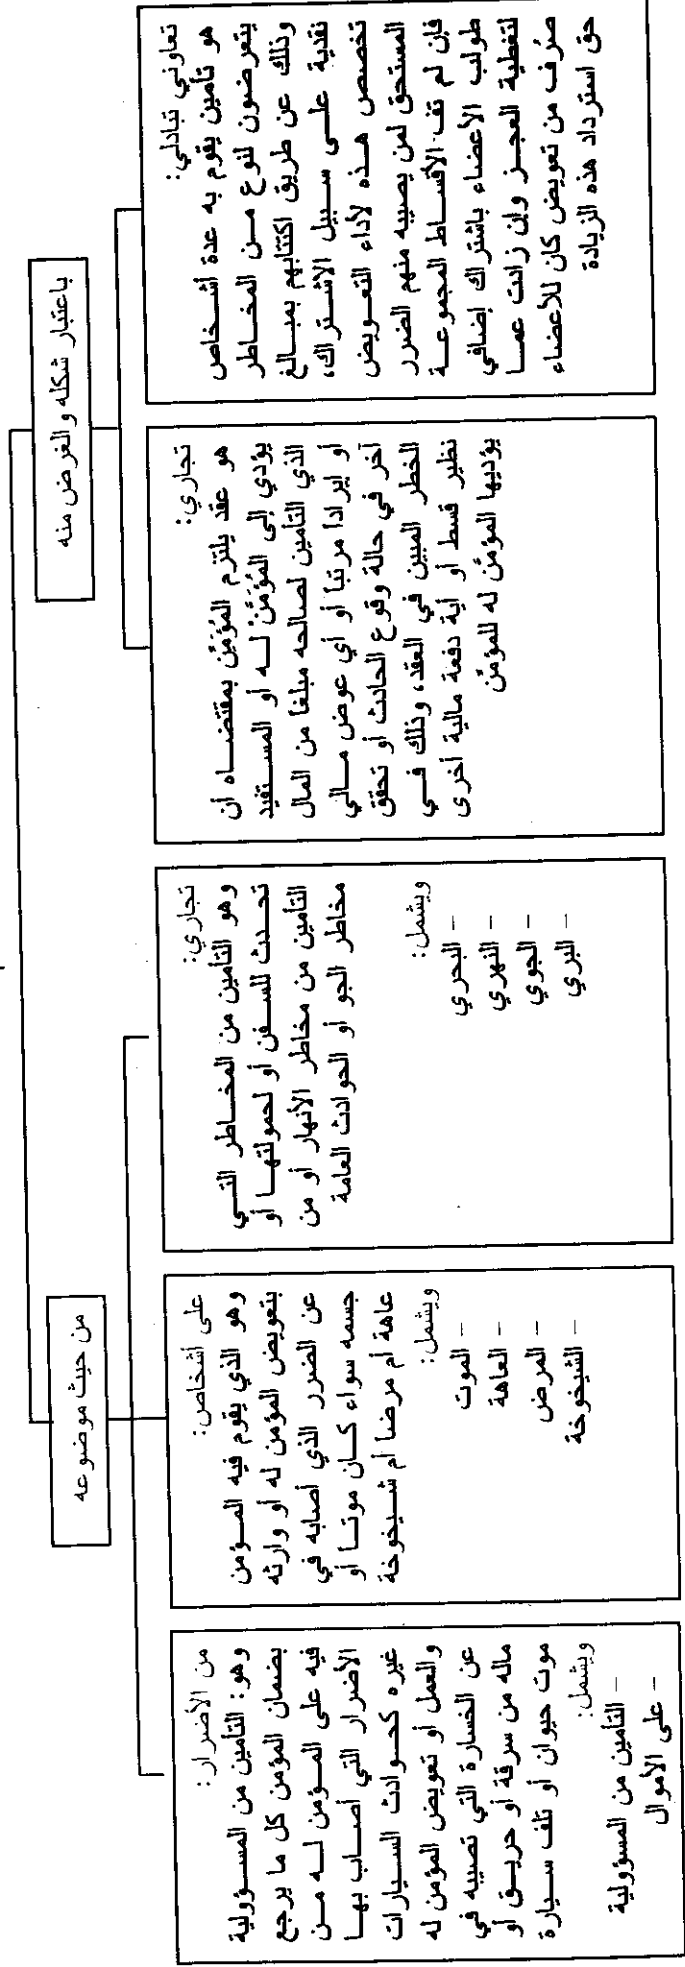 باعتبار شكله والغرض منه
تعاوني تبادلي:
هو تأمين يقوم به عدة أشخاص
يتعرضون لنوع من المخاطر
وذلك عن طريق اكتتابهم بمبالغ
نقدية على سبيل الاشتراك،
تخصص هذه لأداء التعويض
المستحق لمن يصيبه منهم الضرر
فإن لم تف الأقساط المجموعة
طولب الأعضاء باشتراك إضافي
لتغطية العجز وإن زادت عما
صُرف من تعويض كان للأعضاء
حق استرداد هذه الزيادة
تجاري:
هو عقد يلتزم المُؤَمِّن بمقتضاه أن
يؤدي إلى المُؤَمَّنْ له أو المستفيد
الذي التأمين لصالحه مبلغا من المال
أو إيرادا مرتبا أو أي عوض مالي
آخر في حالة وقوع الحادث أو تحقق
الخطر المبين في العقد، وذلك في
نظير قسط أو أية دفعة مالية أخرى
يؤديها المؤمَّن له للمؤمِّن
من حيث موضوعه
تجاري:
وهو التأمين من المخاطر التي
تحدث للسفن أو لحمولتها أو
التأمين من مخاطر الأنهار أو من
مخاطر الجو أو الحوادث العامة
ويشمل:
– البحري
– النهري
– الجوي
– البري
على أشخاص:
وهو الذي يقوم فيه المؤمن
بتعويض المؤمن له أو وارثه
عن الضرر الذي أصابه في
جسمه سواء كان موتا أو
عاهة أم مرضا أم شيخوخة
ويشمل:
– الموت
– العاهة
– المرض
– الشيخوخة
من الأضرار:
وهو: التأمين من المسؤولية
بضمان المؤمن كل ما يرجع
فيه على المؤمن له من
الأضرار التي أصاب بها
غيره كحوادث السيارات
والعمل أو تعويض المؤمن له
عن الخسارة التي تصيبه في
ماله من سرقة أو حريق أو
موت حيوان أو تلف سيارة
ويشمل:
– التأمين من المسؤولية
– على الأموال